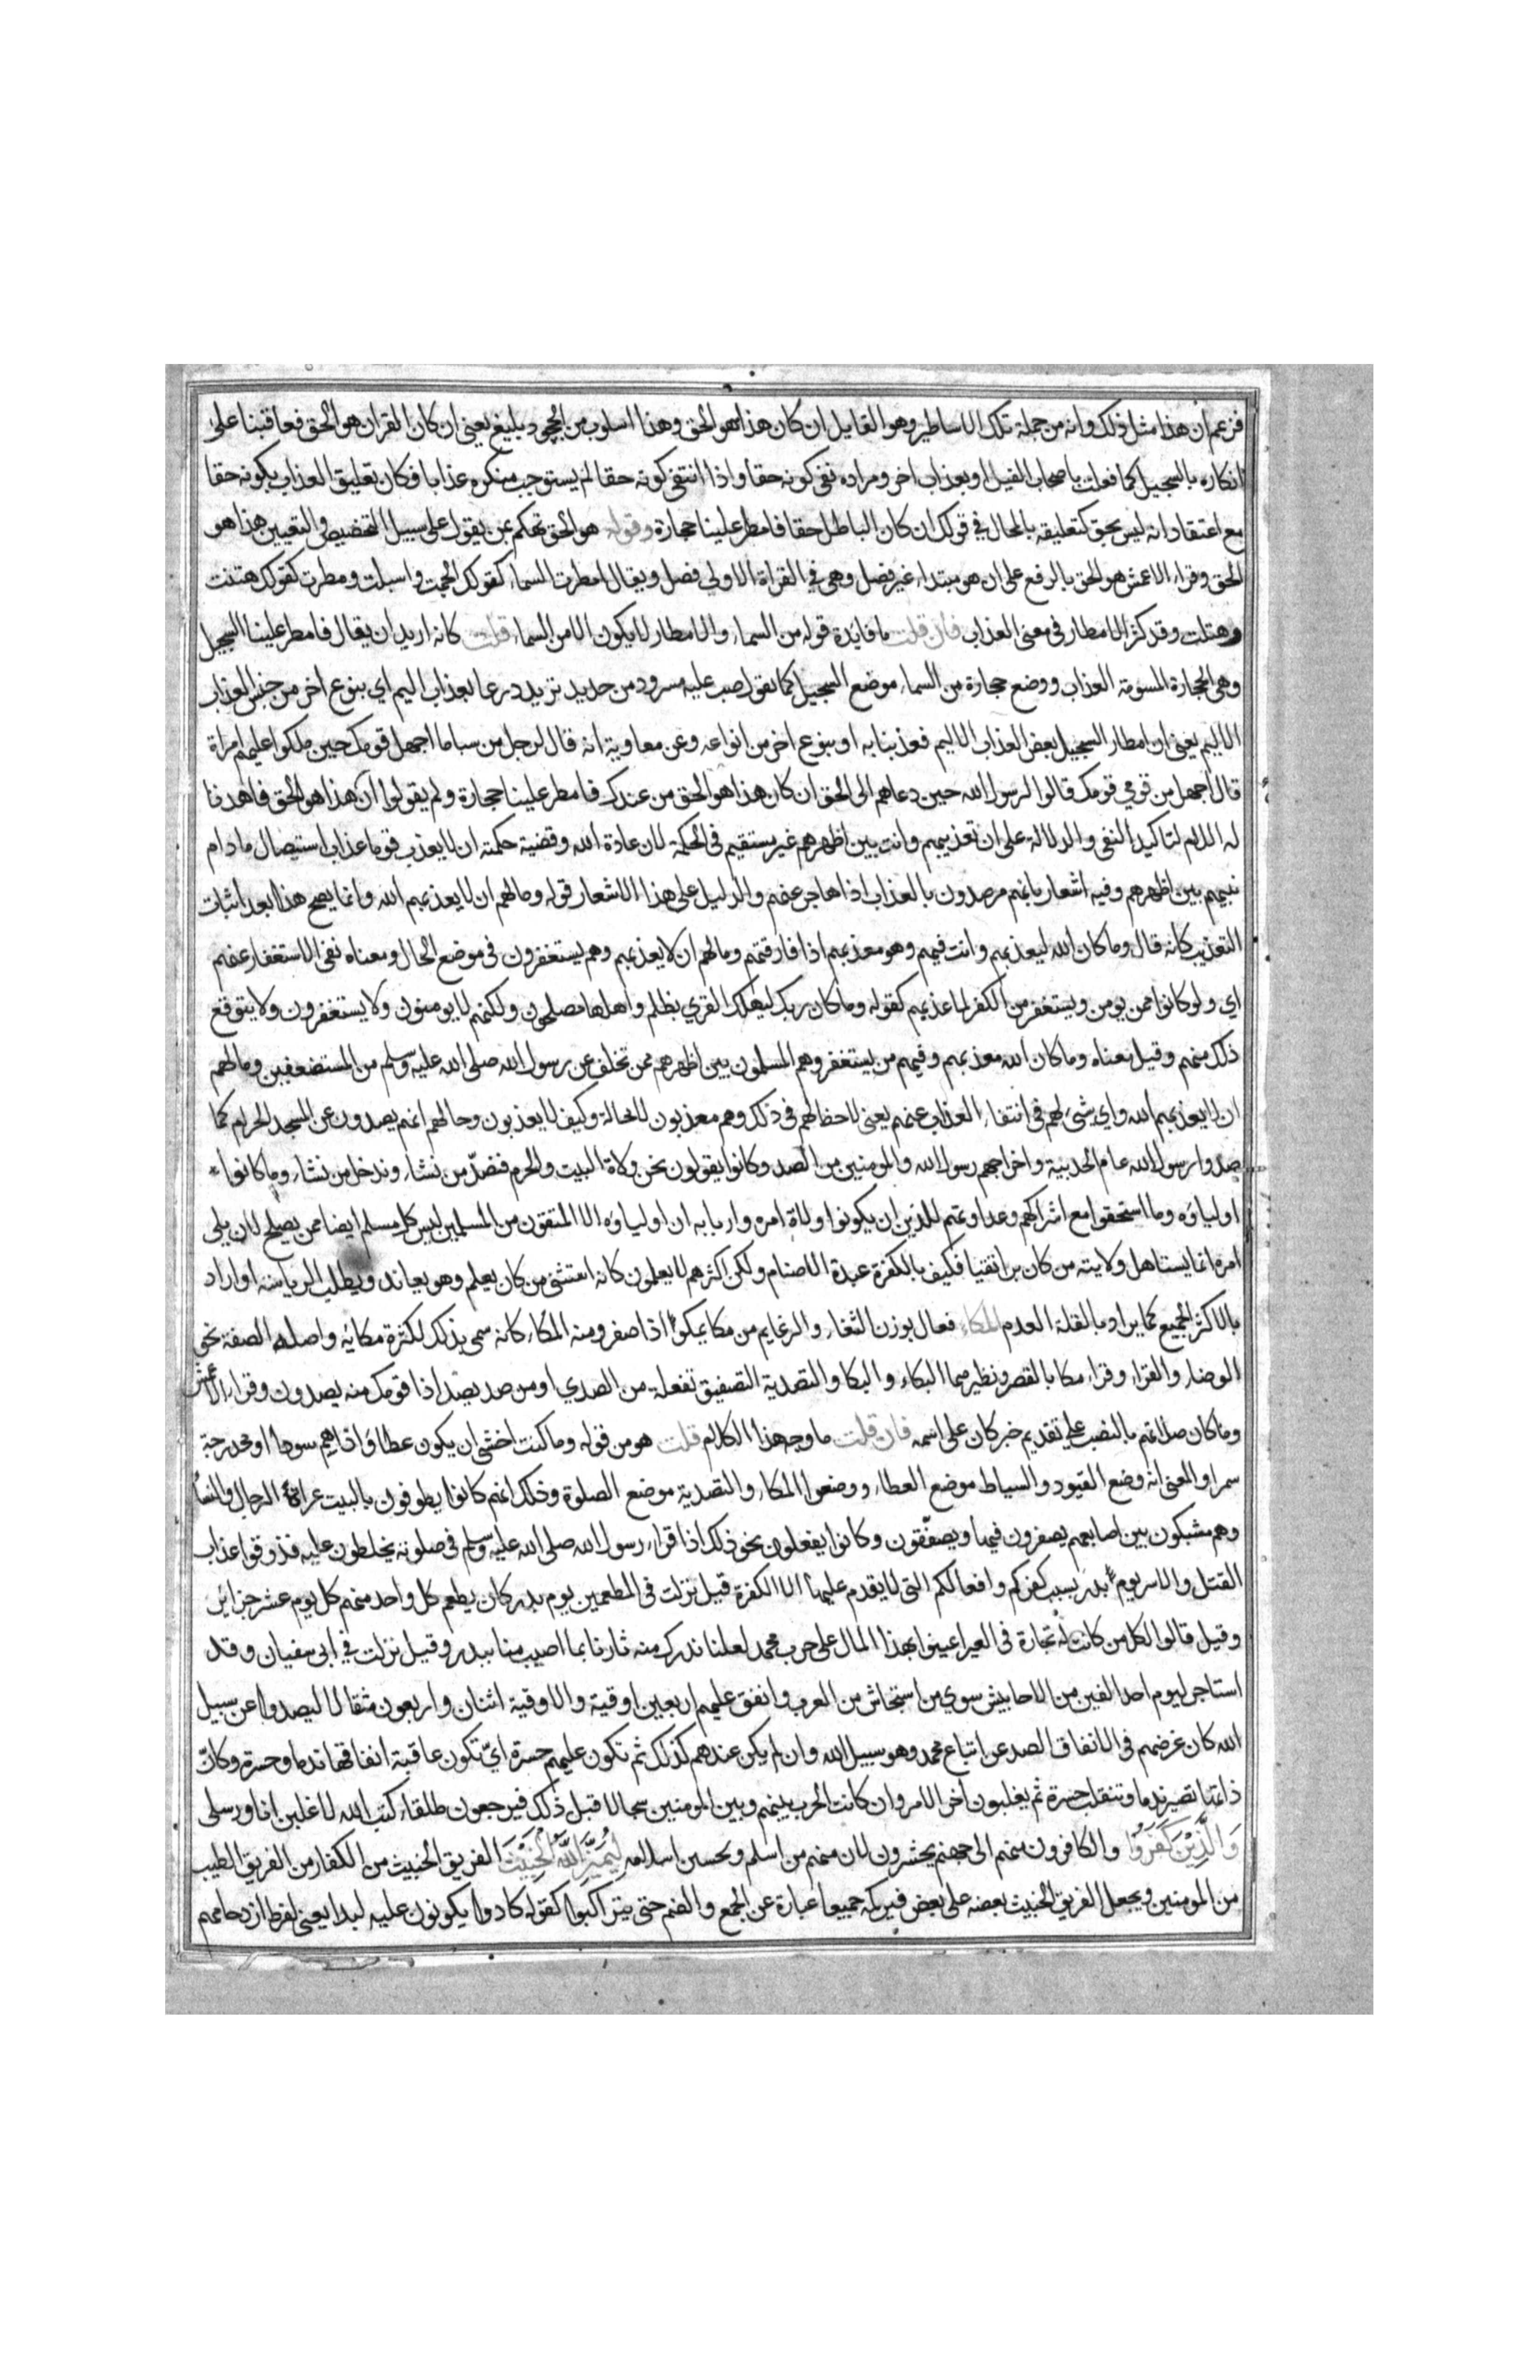 فزعم ان هذا مثل ذلك وانه من جملة تلك الاساطير وهو القايل ان كان هذا هو الحق وهذا اسلوب من الجحود بليغ يعني ان كان القران هو الحق فعاقبنا على
انكاره بالسجيل كما فعلت باصحاب الفيل او بعذاب اخر ومراده نفي كونه حقا واذا انتفى كونه حقا لم يستوجب منكره عذابا فكان تعليق العذاب بكونه حقا
مع اعتقاد انه ليس بحق كتعليقه بالمحال في قولك ان كان الباطل حقا فامطر علينا حجارة وقوله هو الحق تهكم بمن يقول على سبيل التخصيص والتعيين هذا هو
الحق وقراء الاعمش هو الحق بالرفع على ان هو مبتداء غير فصل وهي في القراة الاولى فصل ويقال امطرت السماء كقولك انجمت واسبلت ومطرت كقولك هتنت
وهتلت وقد كثر الامطار في معنى العذاب فان قلت ما فايدة قوله من السماء والامطار لا يكون الا من السماء قلت كانه اريد ان يقال فامطر علينا السجيل
وهي الحجارة المسومة العذاب ووضع حجارة من السماء موضع السجيل كما نقول صب عليه مسرود من حديد تريد درعا بعذاب اليم اي بنوع اخر من جنس العذاب
الاليم يعني ان امطار السجيل بعض العذاب الاليم فعذبنا به او بنوع اخر من انواعه وعن معاوية انه قال لرجل من سبا ما اجهل قومك حين ملكوا عليهم امراة
قال اجهل من قومي قومك قالوا لرسول الله حين دعاهم الى الحق ان كان هذا هو الحق من عندك فامطر علينا حجارة ولم يقولوا ان هذا هو الحق فاهدنا
له اللام لتاكيد النفي والدلالة على ان تعذيبهم وانت بين اظهرهم غير مستقيم في الحكمة لان عادة الله وقضية حكمته ان لا يعذب قوما عذاب استيصال ما دام
نبيهم بين اظهرهم وفيه اشعار بانهم مرصدون بالعذاب اذا هاجر عنهم والدليل على هذا الاشعار قوله وما لهم ان لا يعذبهم الله وانما يصح هذا بعد اثبات
التعذيب كانه قال وما كان الله ليعذبهم وانت فيهم وهو معذبهم اذا فارقتهم وما لهم ان لا يعذبهم وهم يستغفرون في موضع الحال ومعناه نفي الاستغفار عنهم
اي ولو كانوا ممن يومن ويستغفر من الكفر لما عذبهم كقوله وما كان ربك ليهلك القري بظلم واهلها مصلحون ولكنهم لا يومنون ولا يستغفرون ولا يتوقع
ذلك منهم وقيل معناه وما كان الله معذبهم وفيهم من يستغفر وهم المسلمون بين اظهرهم ممن تخلف عن رسول الله صلى الله عليه وسلم من المستضعفين وما لهم
ان لا يعذبهم الله واي شئ لهم في انتفاء العذاب عنهم يعني لا حظ لهم في ذلك وهم معذبون لا محالة وكيف لا يعذبون وحالهم انهم يصدون عن المسجد الحرام كما
صدوا رسول الله عام الحديبية واخراجهم رسول الله والمومنين من الصد وكانوا يقولون نحن ولاة البيت والحرم فنصد من نشاء وندخل من نشاء وما كانوا
اولياؤه وما استحقوا مع اشراكهم وعداوتهم للدين ان يكونوا اولاة امره واربابه ان اولياؤه الا المتقون من المسلمين ليس كل مسلم ايضا ممن يصلح لان يلي
امره انما يستاهل ولايته من كان برا تقيا فكيف بالكفرة عبدة الاصنام ولكن اكثرهم لا يعلمون كانه استثنى من كان يعلم وهو يعاند ويطلب الرياسة او اراد
بالاكثر الجميع كما يراد بالقلة العدم المكاء فعال بوزن الثغاء والرغاء من مكا يمكوا اذا صفر ومنه المكاء كانه سمي بذلك لكثرة مكائه واصله الصفة نحو
الوضاء والقراء وقراء مكا بالقصر ونظيرهما البكاء والبكا والتصدية التصفيق تفعلة من الصدي او من صد يصد اذا قومك منه يصدون وقراء الاعمش
وما كان صلاتهم بالنصب على تقديم خبر كان على اسمه فان قلت ما وجه هذا الكلام قلت هو من قوله وما كنت اخشى ان يكون عطاؤ اداهم سودا او محدرجة
سمرا والمعنى انه وضع القيود والسياط موضع العطاء ووضعوا المكاء والتصدية موضع الصلوة وذلك انهم كانوا يطوفون بالبيت عراة الرجال والنساء
وهم مشبكون بين اصابعهم يصفرون فيها ويصفقون وكانوا يفعلون نحو ذلك اذا قراء رسول الله صلى الله عليه وسلم في صلوته يخلطون عليه فذوقوا عذاب
القتل والاسر يوم بدر بسبب كفركم وافعالكم التي لا يقدم عليها الا الكفرة قيل نزلت في المطعمين يوم بدر كان يطعم كل واحد منهم كل يوم عشر جزاير
وقيل قالوا لكل من كانت له تجارة في العير اعينوا بهذا المال على حرب محمد لعلنا ندرك منه ثارنا بما اصيب منا ببدر وقيل نزلت في ابي سفيان وقد
استاجر ليوم احد الفين من الاحابيش سوي من استجاش من العرب وانفق عليهم اربعين اوقية والاوقية اثنان واربعون مثقالا ليصدوا عن سبيل
الله كان غرضهم في الانفاق الصد عن اتباع محمد وهو سبيل الله وان لم يكن عندهم كذلك ثم تكون عليهم حسرة اي تكون عاقبة انفاقها ندما وحسرة وكان
ذاتها تصير ندما وتنقلب حسرة ثم يغلبون اخر الامر وان كانت الحرب بينهم وبين المومنين سجالا قبل ذلك فيرجعون طلقاء كتب الله لاغلبن انا ورسلي
وَالَّذِيْنَ كَفَرُوْا والكافرون منهم الى جهنم يحشرون لان منهم من اسلم وحسن اسلامه لِيَمِيْزَ اللّٰهُ الْخَبِيْثَ الفريق الخبيث من الكفار من الفريق الطيب
من المومنين ويجعل الفريق الخبيث بعضه على بعض فيركمه جميعا عبارة عن الجمع والضم حتى يتراكبوا كقوله كادوا يكونون عليه لبدا يعني لفرط ازدحامهم